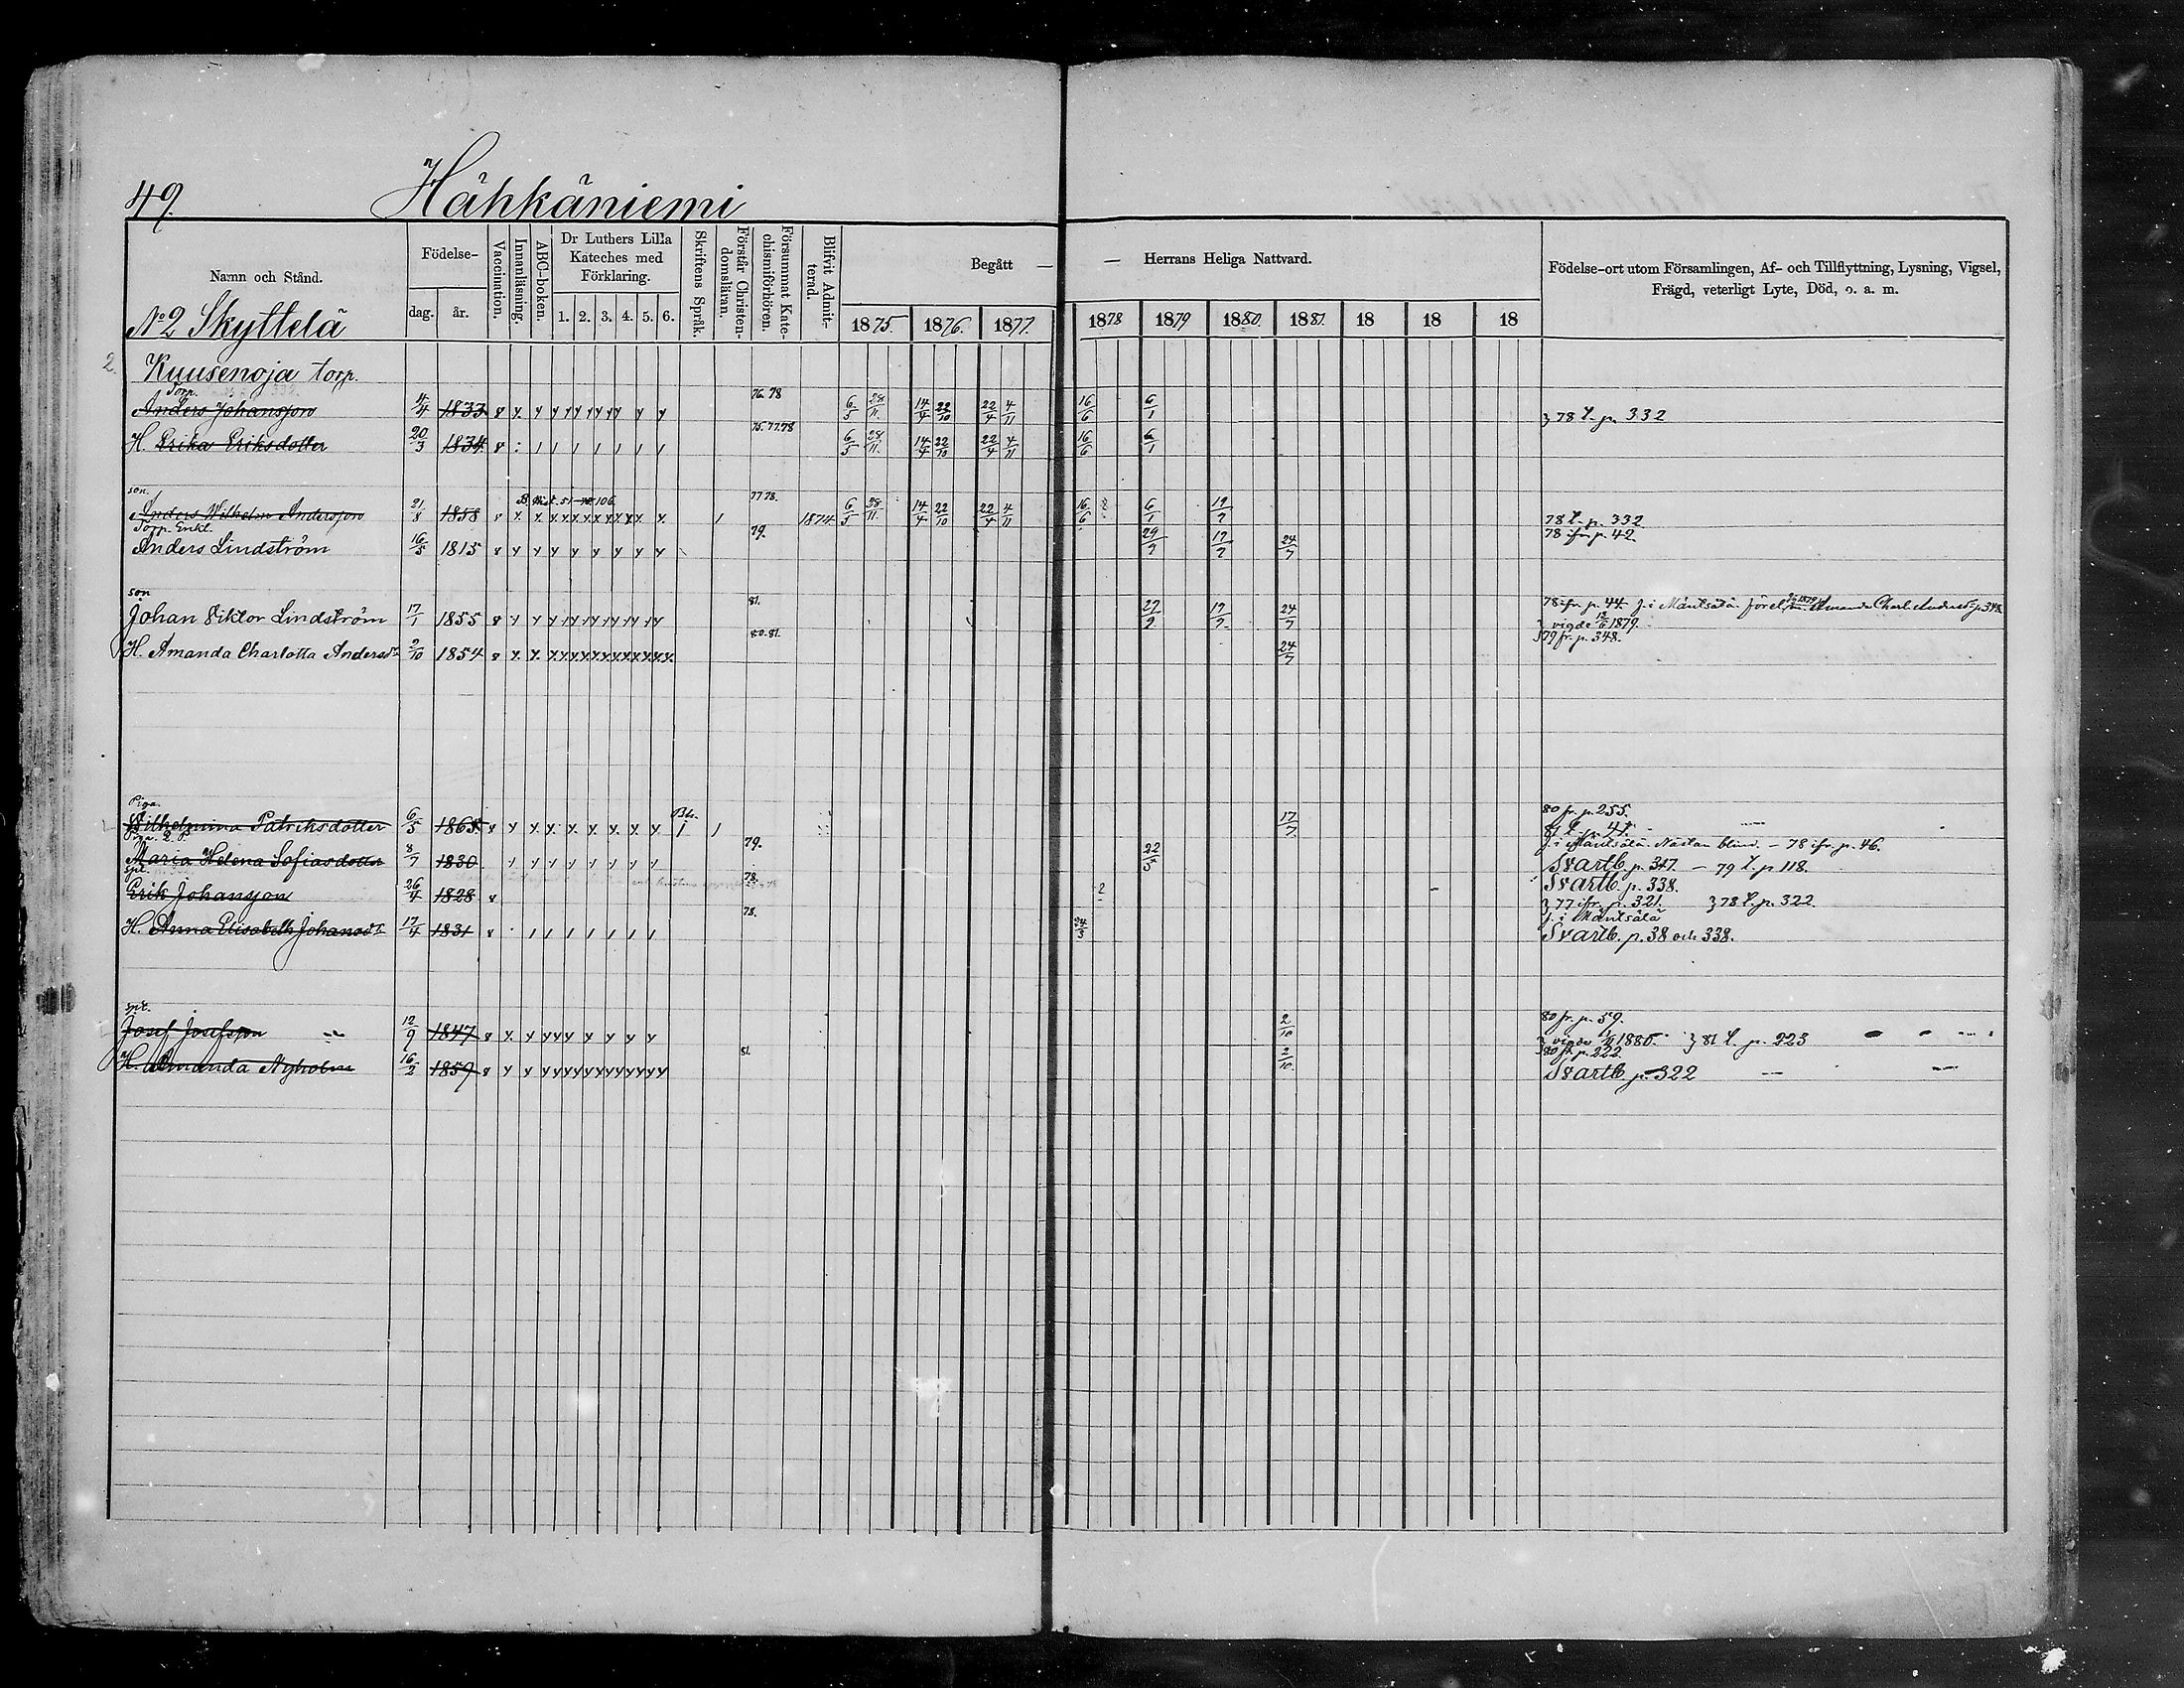 49. Hähkäniemi
Namn och Stånd.
Födelse-
dag. år.
Vaccination.
Innanläsning.
ABC-boken.
Dr Luthers Lilla
Kateches med
Förklaring.
1. 2. 3. 4. 5. 6.
Skriftens Språk.
Förstår Christen-
domsläran.
Försummat Kate-
chismiförhören.
Blifvit Admit-
terad.
Begått — — Herrans Heliga Nattvard.
1875. 1876. 1877. 1878 1879 1880. 1881. 18 18 18
Födelse-ort utom Församlingen, Af- och Tillflyttning, Lysning, Vigsel,
Frägd, veterligt Lyte, Död, o. a. m.
No 2 Skyttelä
2. Kuusenoja torp.
Torp. 76. 78
Anders Johansson 4/4 1833 6/5 28/11. 14/4 22/10 22/4 4/11 16/6 6/1 78 t. p. 332
75. 77. 78
H. Erika Eriksdotter 20/3 1834 6/5 28/11. 14/4 22/10 22/4 4/11 16/6 6/1
son. 77 78.
Anders Wilhelm Andersson 21/8 1858 1874 6/5 28/11. 14/4 22/10 22/4 4/11 16/6 6/1 78 t. p. 332
Torp. Enkl. 79. 78 ifr. p. 42.
Anders Lindström 16/5 1815 24/7
son 81. 78 ifr. p. 44. f. i Mäntsälä
Johan Viktor Lindström 17/1 1855 24/7 vigde 1879.
80. 81. 79 fr. p. 348.
H. Amanda Charlotta Andersdr 2/10 1854 24/7
Piga. 80 fr. p. 255.
Wilhelmina Patriksdotter 6/5 1863 17/7 81 t. p. 41.
79. f. i Mäntsälä. Nästan blind. - 78 ifr. p. 46.
Maria Helena Sofiasdotter 8/7 1830 22/5 Svartb. p. 347. - 79 t. p 118.
78. Svartb. p. 338.
Erik Johansson 26/4 1828 77 ifr. p. 321. 78 t. p. 322.
78. f. i Mäntsälä
H. Anna Elisabeth Johansdr 17/4 1831 24/3 Svartb. p. 38 och 338.
80 fr. p. 59.
Josef Josefsson 12/9 1847 2/10 1880. 81 t. p. 223
81. 80 fr. p. 222.
H. Amanda Nyholm 16/2 1859 2/10. Svartb. p. 322